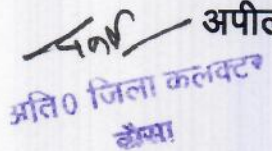 अपील
अति0 जिला कलक्टर
दौसा